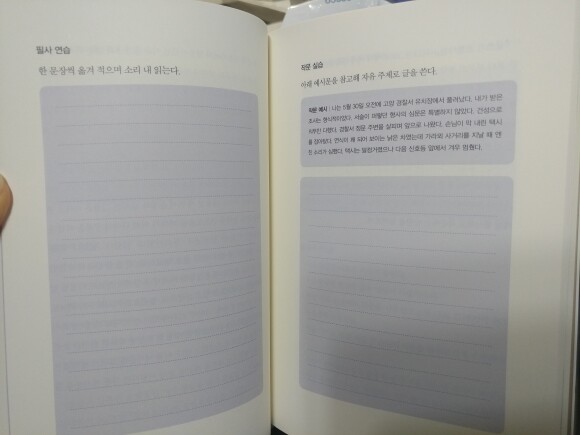 필사 연습
한 문장씩 옮겨 적으며 소리 내 읽는다.
작문 실습
아래 예시문을 참고해 자유 주제로 글을 쓴다.
작문 예시 : 나는 5월 30일 오전에 고양 경찰서 유치장에서 풀려났다. 내가 받은
조사는 형식적이었다. 서술이 어떻든 형사의 심문은 특별하지 않았다. 건성으로
치부인
경찰서 정문 주변을 살피며 앞으로 나왔다. 손님이 막 내린 택시
를 잡아탔다. 연식이 꽤 되어 보이는 낡은 차였는데 가락의 사거리를 지날 때 엔
진 소리가 심했다. 택시는 덜컹거렸으나 다음 신호등 앞에서 겨우 멈췄다.